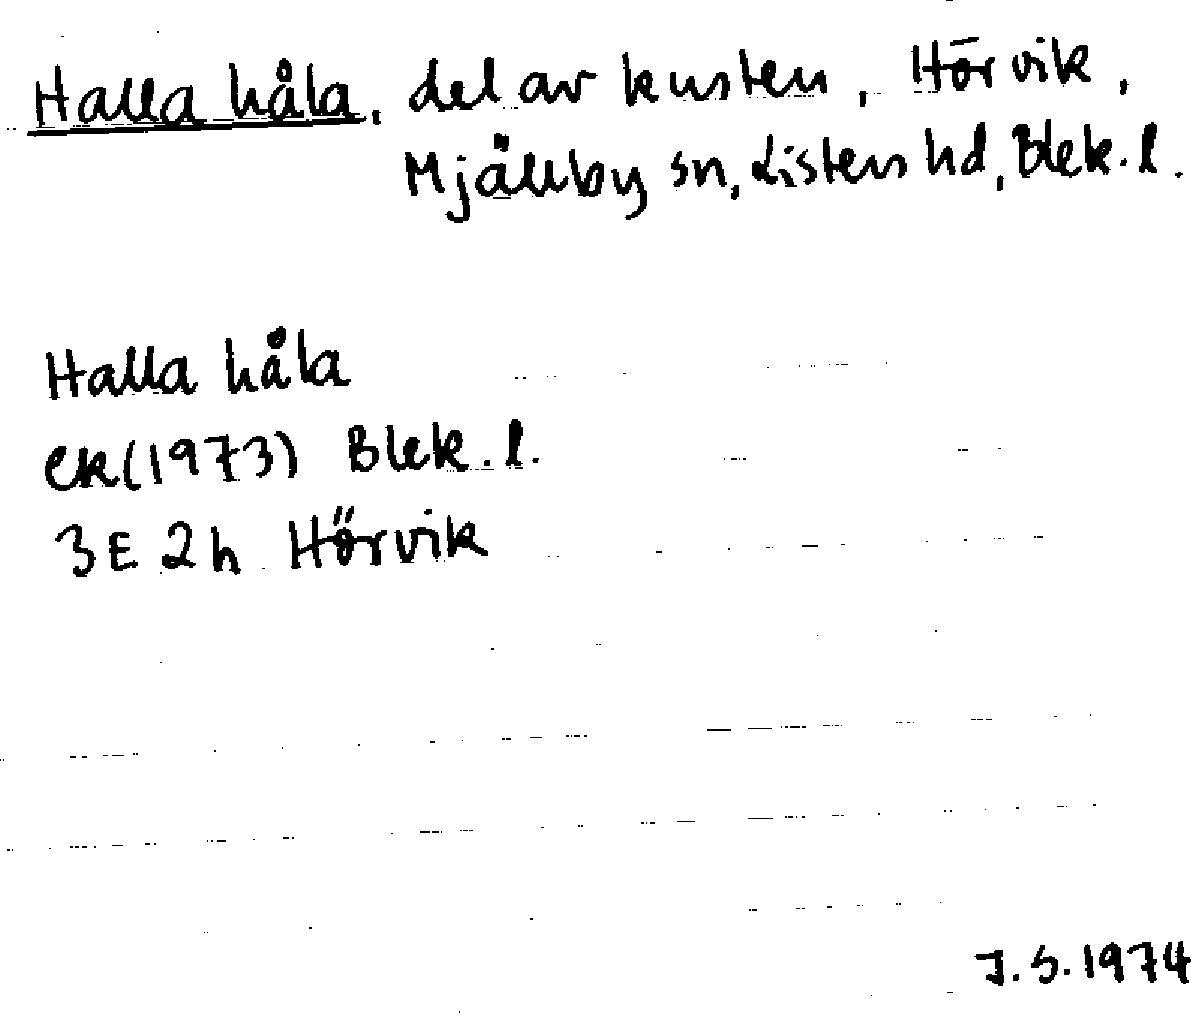 Halla håla, del av kusten, Hörvik,
Mjällby sn, Listers hd, Blek. l.
Halla håla
ek (1973) Blek. l.
3E 2h Hörvik
J.S. 1974